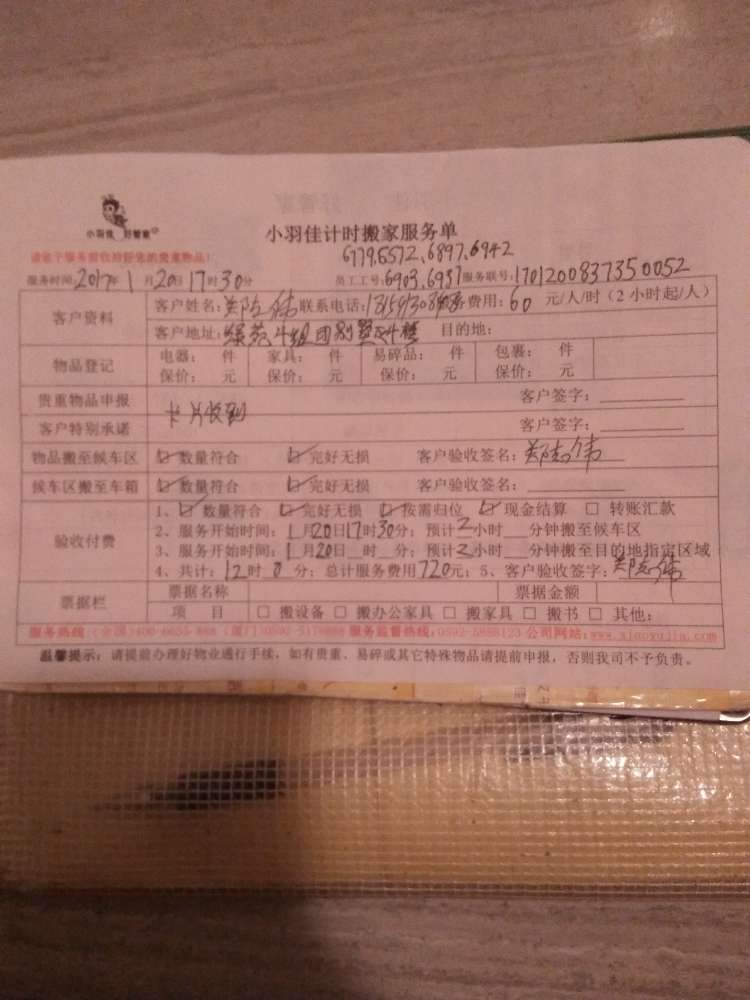 小羽佳 好管家
小羽佳计时搬家服务单
6779,5572,6897,6942
请在于服务前收拾好您的贵重物品！
服务时间:2017年1月20日17时30分 员工工号:6903,6937 服务联号:1701200837350052
客户资料 客户姓名: 联系电话: 服务费用:60 元/人/时（2小时起/人）
客户地址: 目的地:
物品登记 电器: 件 家具: 件 易碎品: 件 包裹: 件
保价: 元 保价: 元 保价: 元 保价: 元
贵重物品申报 卡片收到 客户签字:
客户特别承诺 客户签字:
物品搬至候车区 ☑ 数量符合 ☑ 完好无损 客户验收签名:郑志伟
候车区搬至车箱 ☑ 数量符合 ☑ 完好无损 客户验收签名:
验收付费 1、☑ 数量符合 ☑ 完好无损 ☑ 按需归位 ☑ 现金结算 □ 转账汇款
2、服务开始时间:1月20日17时30分；预计2小时 分钟搬至候车区
3、服务开始时间:1月20日 时 分；预计2小时 分钟搬至目的地指定区域
4、共计:12时0分；总计服务费用720元；5、客户验收签字:郑志伟
票据栏 票据名称 票据金额
项 目 □ 搬设备 □ 搬办公家具 □ 搬家具 □ 搬书 □ 其他:
服务热线: 服务监督热线: 公司网站:www.xiaoyujia.com
温馨提示: 请提前办理好物业通行手续，如有贵重、易碎或其它特殊物品请提前申报，否则我司不予负责。